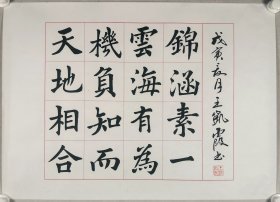 錦涵素一
雲海有為
機負知而
天地相合
戊寅夏月王凱霞书